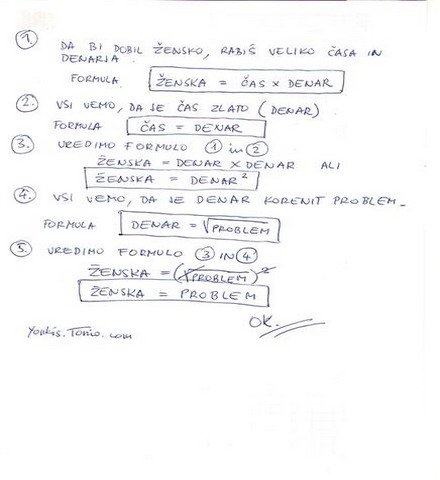 1. DA BI DOBIL ŽENSKO, RABIŠ VELIKO ČASA IN
DENARJA.
FORMULA ŽENSKA = ČAS x DENAR
2. VSI VEMO, DA JE ČAS ZLATO (DENAR)
FORMULA ČAS = DENAR
3. UREDIMO FORMULO 1 in 2
ŽENSKA = DENAR x DENAR ALI
ŽENSKA = DENAR²
4. VSI VEMO, DA JE DENAR KORENIT PROBLEM.
FORMULA DENAR = √PROBLEM
5. UREDIMO FORMULO 3 IN 4
ŽENSKA = (√PROBLEM)²
ŽENSKA = PROBLEM
OK.